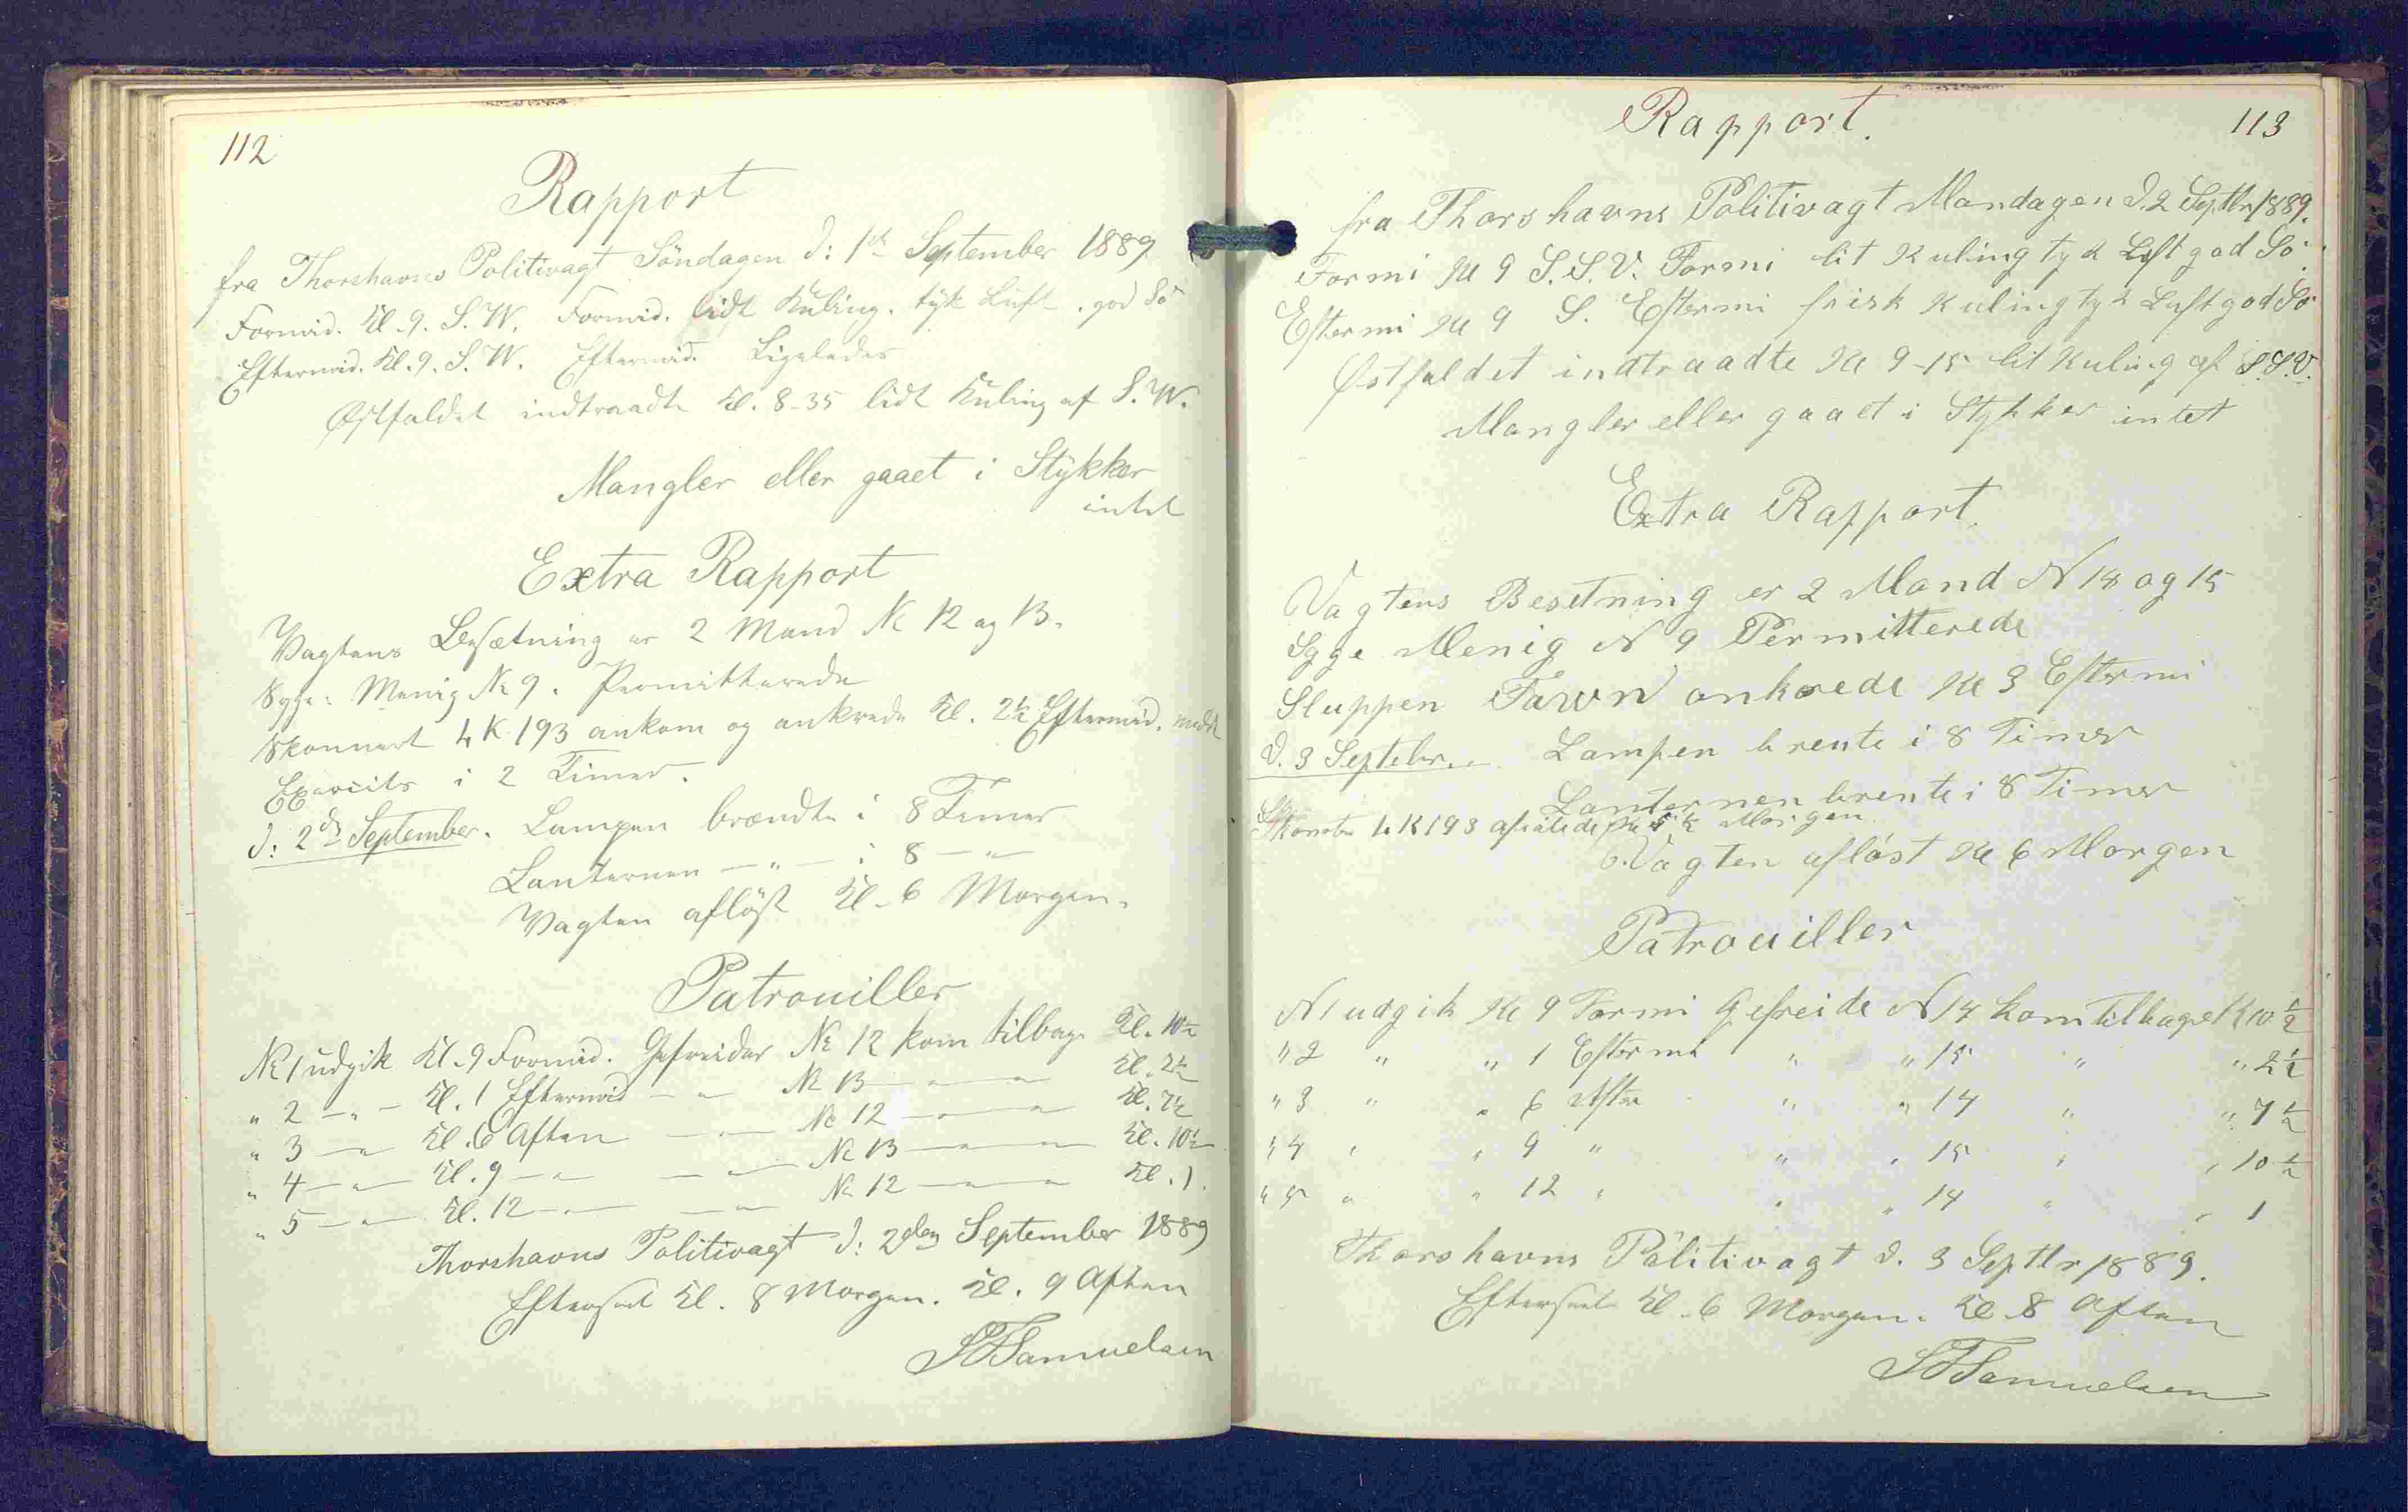 112
Rapport
fra Thorshavns Politivagt Söndagen d: 1ste September 1889
Formid. Kl. 9. S. W. Formid. lidt Kuling. tyk Luft. god Sö
Eftermid. Kl. 9. S. W. Eftermid. Ligeledes
Østfaldet indtraadte Kl. 8-35 lidt Kuling af S. W.
Mangler eller gaaet i Stykker
intet
Extra Rapport
Vagtens Besætning er 2 Mand № 12 og 13.
Syge: Menig № 9. Permitterede
Skonnert LK 193 ankom og ankrede Kl. 2½ Eftermid.
Exercits i 2 Timer.
d: 2den September. Lampen brændte i 8 Timer
Lanternen — " — i 8 — " —
Vagten afløst Kl. 6 Morgen.
Patrouiller
№ 1 udgik Kl. 9 Formid. Gefreider № 12 kom tilbage Kl. 10½
" 2 — " — Kl. 1 Eftermid — " — № 13 — " — " — Kl. 2½
" 3 — " — Kl. 6 Aften — " — № 12 — " — " — Kl. 7½
" 4 — " — Kl. 9 — " — — " — № 13 — " — " — Kl. 10½
" 5 — " — Kl. 12 — " — — " — № 12 — " — " — Kl. 1.
Thorshavns Politivagt d: 2den September 1889
Efterseet Kl. 8 Morgen. Kl. 9 Aften
Samuelsen
Rapport.
113
fra Thorshavns Politivagt Mandagen d. 2 Septbr 1889.
Formi Kl 9 S.S.V. Formi lit Kuling tyk Luft god Sö
Eftermi Kl 9 S. Eftermi frisk Kuling tyk Luft god Sö
Østfaldet indtraadte Kl 9-15 lit Kuling af S.S.V.
Mangler eller gaaet i Stykker intet
Extra Rapport.
Vagtens Besetning er 2 Mand N 14 og 15
Syge Menig N 9 Permitterede
Sluppen Fawn ankrede Kl 3 Eftermi
d. 3 Septebr. Lampen brente i 8 Timer
Lanternen brente i 8 Timer
LK 193 afseilede Morgen.
Vagten afløst Kl 6 Morgen
Patrouiller
N 1 udgik Kl 9 Formi Gefreide N 14 kom tilbage K 10 ½
" 2 " " 1 Eftermi " " 15 " " 2½
" 3 " " 6 Aften " " 14 " " 7½
" 4 " " 9 " " " 15 " " 10½
" 5 " " 12 " " " 14 " " 1
Thorshavns Politivagt d. 3 Septbr 1889.
Efterseet Kl. 6 Morgen. Kl. 8 Aften
Samuelsen